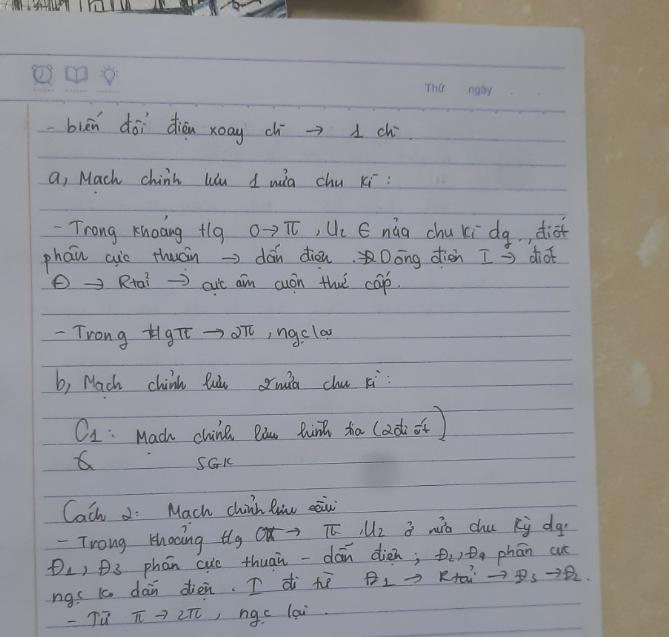 Thứ ngày
- biến đổi điện xoay ch → 1 ch
a, Mạch chỉnh lưu 1 nửa chu kì :
- Trong khoảng t/g 0 → π , U₂ ∈ nửa chu kì dg , điốt
phân cực thuận → dẫn điện . Dòng điện I → điốt
Đ → Rtải → cực âm cuộn thứ cấp.
- Trong t/g π → 2π , ngc lại
b, Mạch chỉnh lưu 2 nửa chu kì :
C1 : Mạch chỉnh lưu hình tia (2 đi ốt)
SGK
Cách 2 : Mạch chỉnh lưu cầu
- Trong khoảng t/g 0 → π , U2 ở nửa chu kỳ dg.
Đ1 , Đ3 phân cực thuận - dẫn điện ; Đ2, Đ4 phân cực
ngc ko dẫn điện . I đi từ Đ1 → Rtải → Đ3 →
- Từ π → 2π , ngc lại .